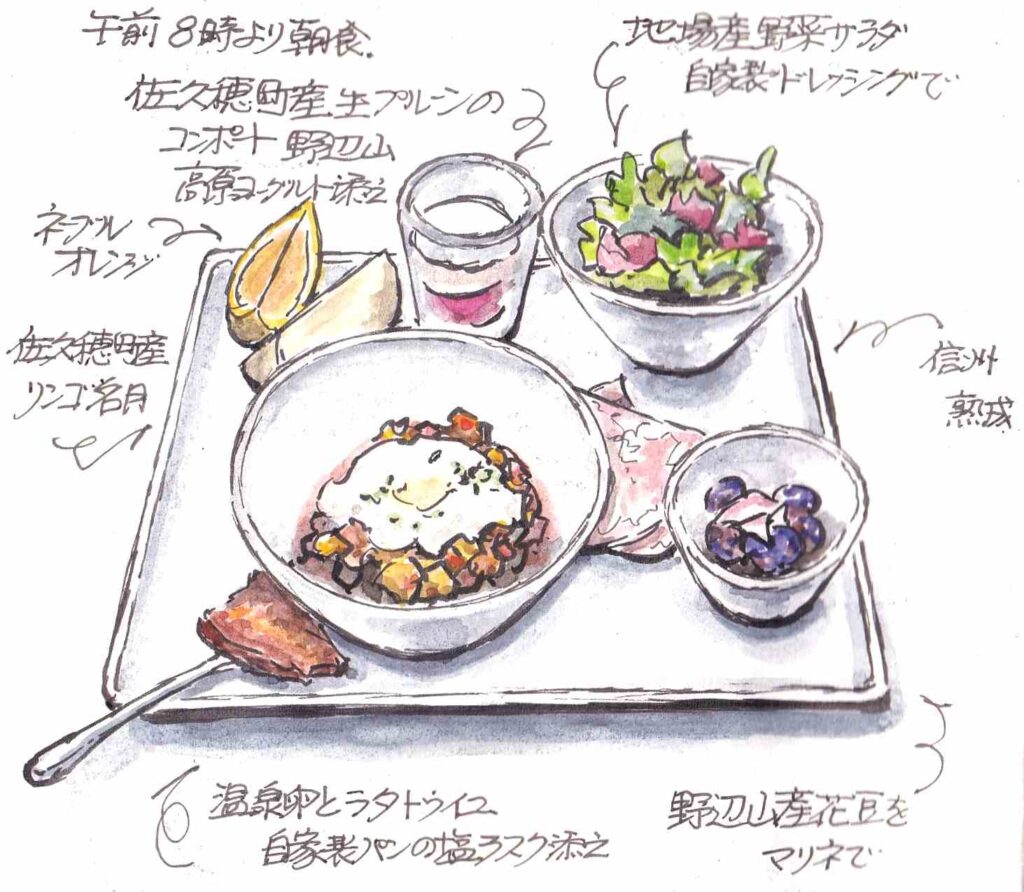 午前8時より朝食.
佐久穂町産生プルーンの
コンポート 野辺山
高原ヨーグルト添え
地場産野菜サラダ
自家製ドレッシングで
ネーブル
オレンジ
佐久穂町産
リンゴ名月
信州
熟成
温泉卵とラタトゥイユ
自家製パンの塩ラスク添え
野辺山産花豆を
マリネで